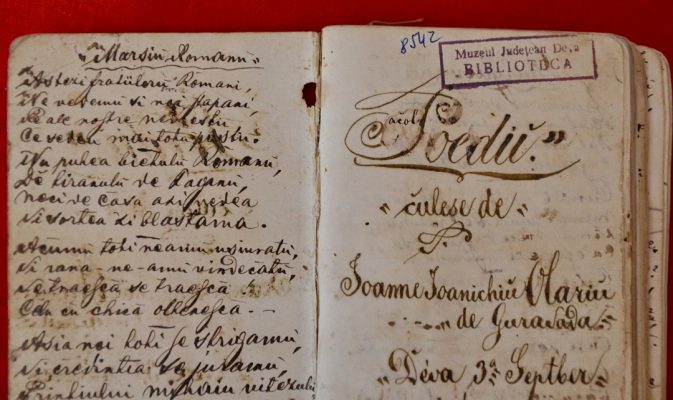 „Marsiu Romanu"
Astezi fratiloru Romani,
Ne vedemu si noi stapani,
Pe ale nostre
Ce sedeau totu
Nu putea bietulu Romanu,
De tiranulu de Paganu,
Nici de casa
Si sortea si blastama.
Acumu toti neamu
Si rana ne-amu vindecatu,
Se traesca se traesca
Cu oltenesca. —
Asia noi toti se strigamu,
Si credintia se juramu,
Printiului Mihaiu vitezulu
8542
Muzeul Judetean Deva
BIBLIOTECA
„Poedii."
„culese de"
P.
Joanne Joanichiu Olariu
de Gurasada.
„Déva 3ª Septbr